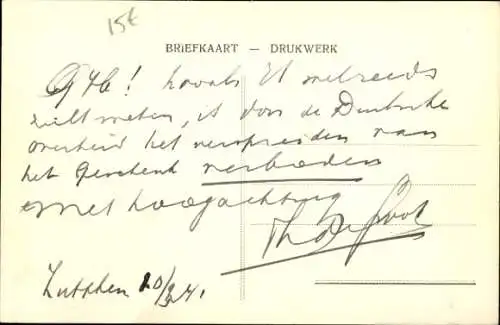 15€
BRIEFKAART — DRUKWERK
zooals U wel reeds
zult weten, is door de Duitsche
overheid het verspreiden van
het Geschenk verboden
Met hoogachting
Th. De Groot
Zutphen 20/3 41.